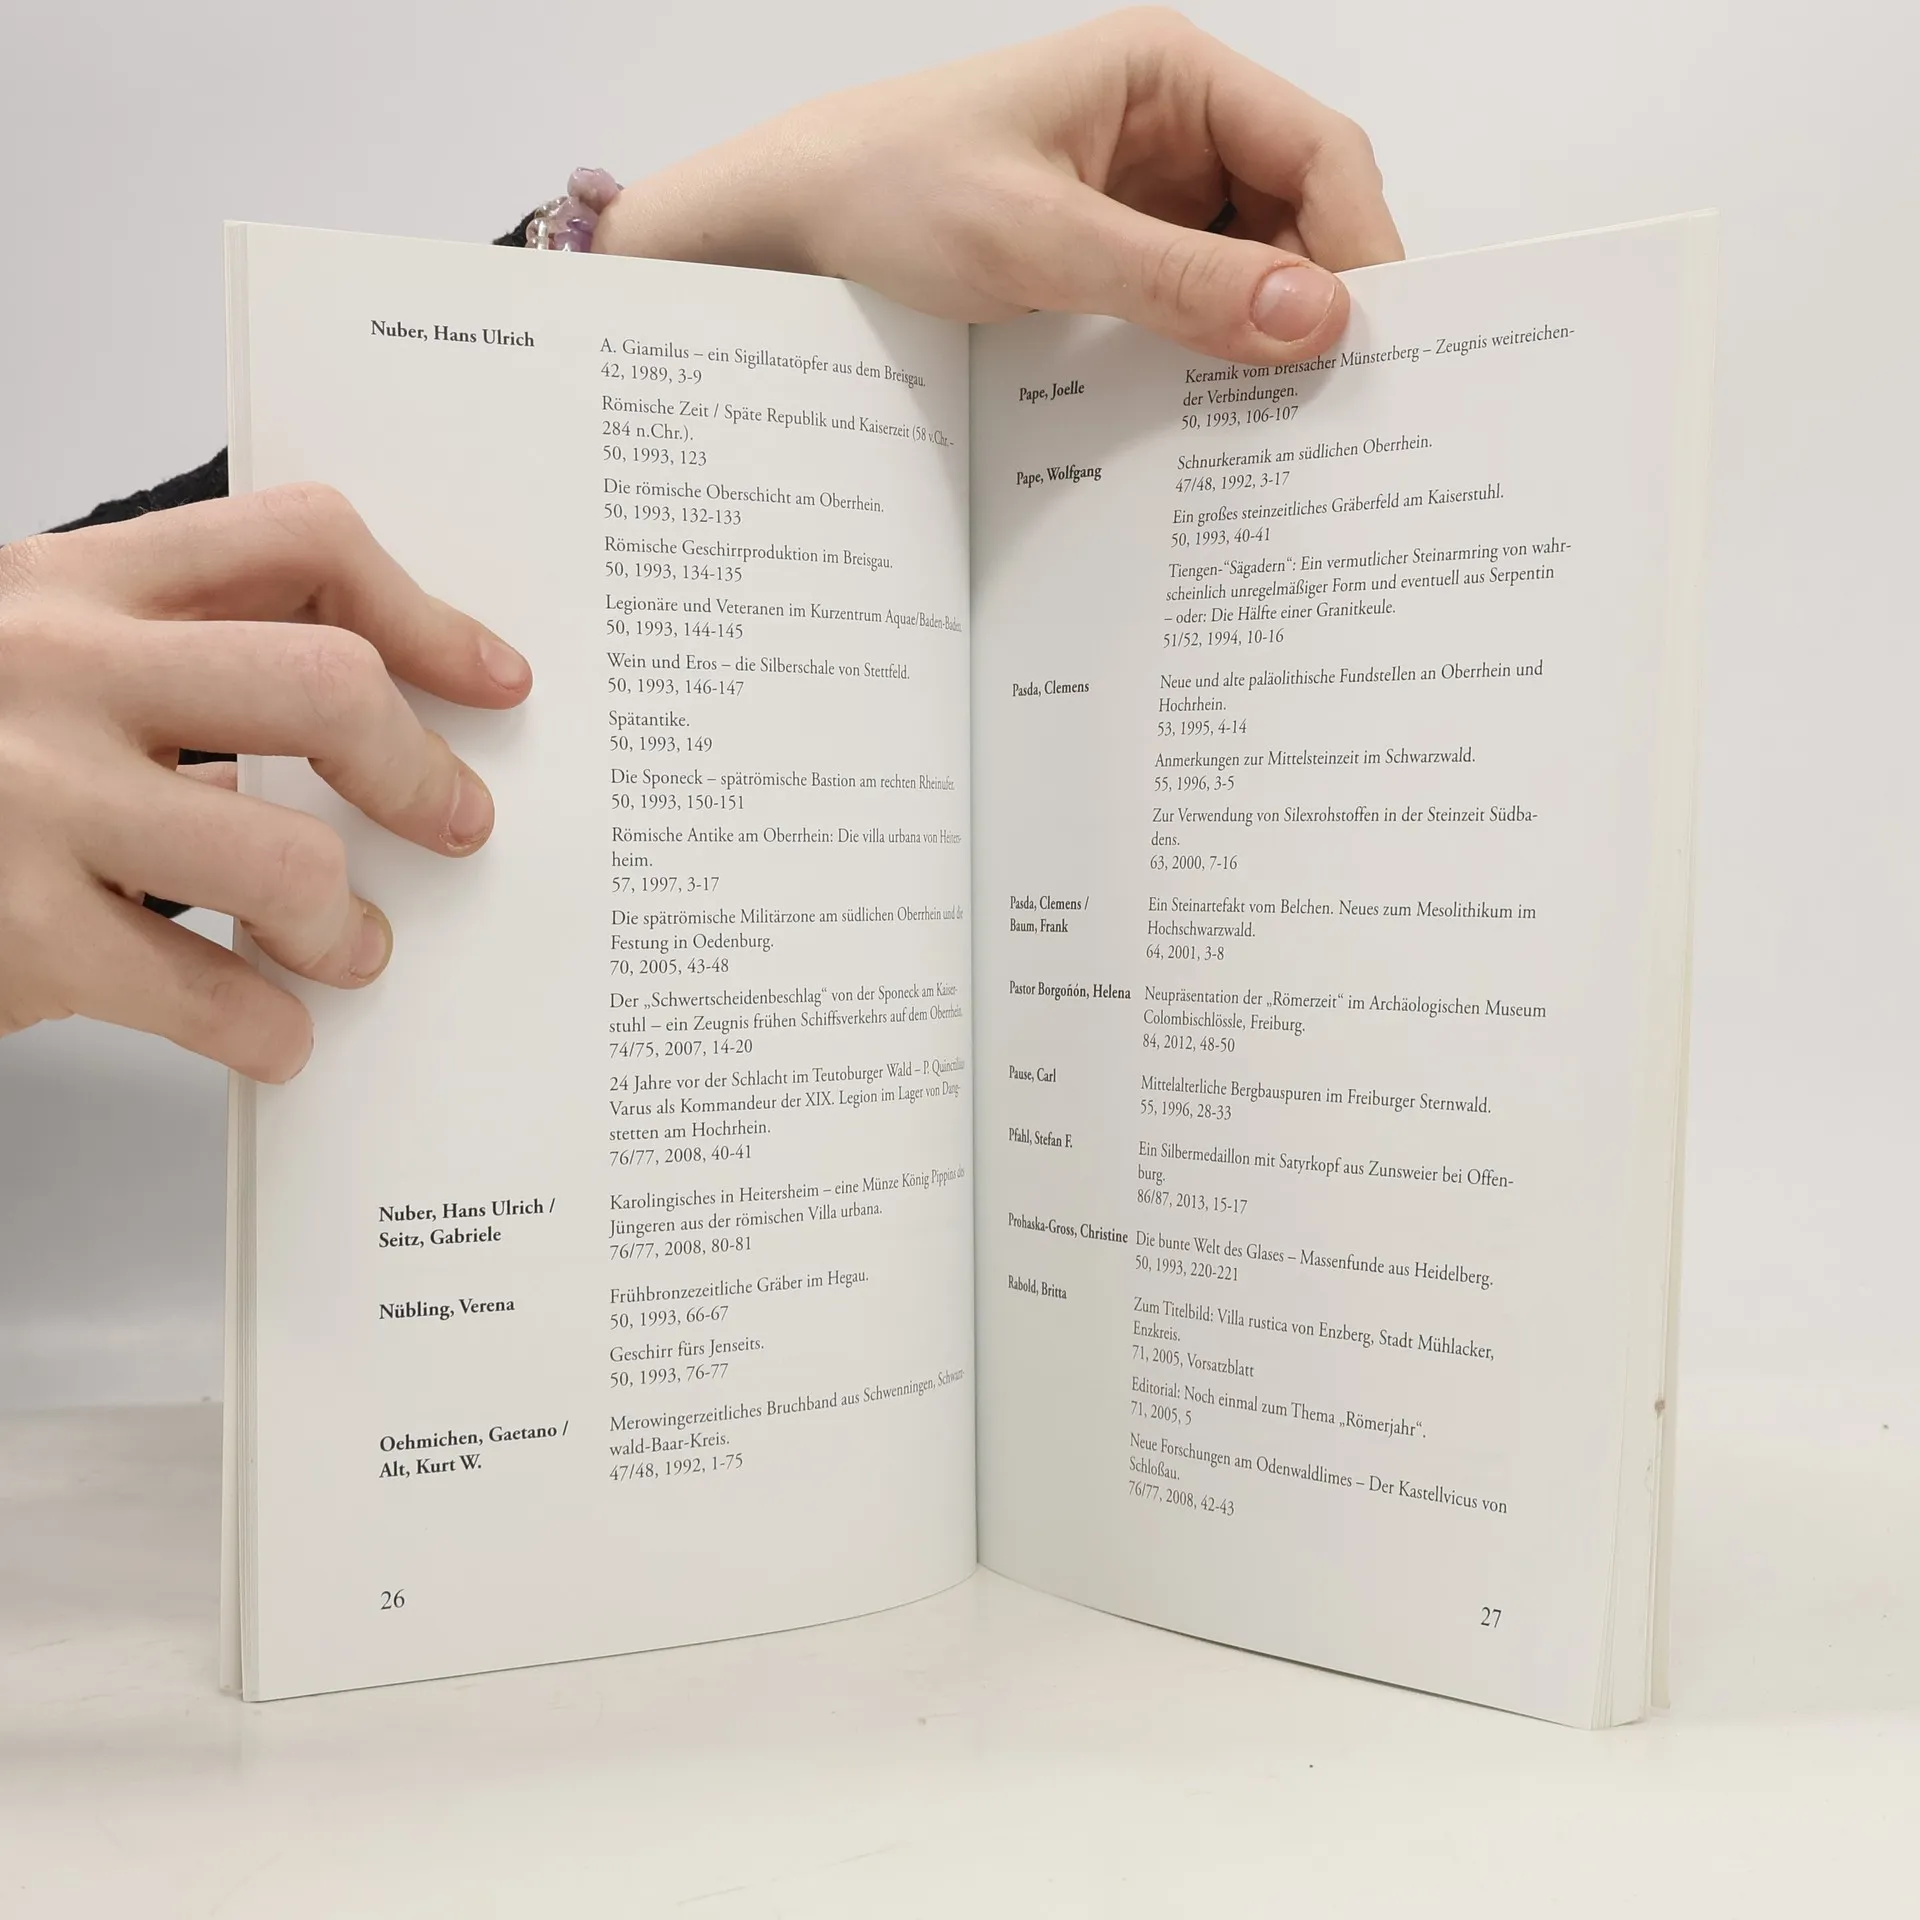 Nuber, Hans Ulrich
A. Giamilus – ein Sigillatatöpfer aus dem Breisgau.
42, 1989, 3-9
Römische Zeit / Späte Republik und Kaiserzeit (58 v.Chr. –
284 n.Chr.).
50, 1993, 123
Die römische Oberschicht am Oberrhein.
50, 1993, 132-133
Römische Geschirrproduktion im Breisgau.
50, 1993, 134-135
Legionäre und Veteranen im Kurzentrum Aquae/Baden-Baden.
50, 1993, 144-145
Wein und Eros – die Silberschale von Stettfeld.
50, 1993, 146-147
Spätantike.
50, 1993, 149
Die Sponeck – spätrömische Bastion am rechten Rheinufer.
50, 1993, 150-151
Römische Antike am Oberrhein: Die villa urbana von Heiters-
heim.
57, 1997, 3-17
Die spätrömische Militärzone am südlichen Oberrhein und die
Festung in Oedenburg.
70, 2005, 43-48
Der „Schwertscheidenbeschlag“ von der Sponeck am Kaiser-
stuhl – ein Zeugnis frühen Schiffsverkehrs auf dem Oberrhein.
74/75, 2007, 14-20
24 Jahre vor der Schlacht im Teutoburger Wald – P. Quinctilius
Varus als Kommandeur der XIX. Legion im Lager von Dang-
stetten am Hochrhein.
76/77, 2008, 40-41
Nuber, Hans Ulrich /
Seitz, Gabriele
Karolingisches in Heitersheim – eine Münze König Pippins des
Jüngeren aus der römischen Villa urbana.
76/77, 2008, 80-81
Nübling, Verena
Frühbronzezeitliche Gräber im Hegau.
50, 1993, 66-67
Geschirr fürs Jenseits.
50, 1993, 76-77
Oehmichen, Gaetano /
Alt, Kurt W.
Merowingerzeitliches Bruchband aus Schwenningen, Schwarz-
wald-Baar-Kreis.
47/48, 1992, 1-75
26
Pape, Joelle
Keramik vom Breisacher Münsterberg – Zeugnis weitreichen-
der Verbindungen.
50, 1993, 106-107
Pape, Wolfgang
Schnurkeramik am südlichen Oberrhein.
47/48, 1992, 3-17
Ein großes steinzeitliches Gräberfeld am Kaiserstuhl.
50, 1993, 40-41
Tiengen-“Sägadern“: Ein vermutlicher Steinarmring von wahr-
scheinlich unregelmäßiger Form und eventuell aus Serpentin
– oder: Die Hälfte einer Granitkeule.
51/52, 1994, 10-16
Pasda, Clemens
Neue und alte paläolithische Fundstellen an Oberrhein und
Hochrhein.
53, 1995, 4-14
Anmerkungen zur Mittelsteinzeit im Schwarzwald.
55, 1996, 3-5
Zur Verwendung von Silexrohstoffen in der Steinzeit Südba-
dens.
63, 2000, 7-16
Pasda, Clemens /
Baum, Frank
Ein Steinartefakt vom Belchen. Neues zum Mesolithikum im
Hochschwarzwald.
64, 2001, 3-8
Pastor Borgoñón, Helena
Neupräsentation der „Römerzeit“ im Archäologischen Museum
Colombischlössle, Freiburg.
84, 2012, 48-50
Pause, Carl
Mittelalterliche Bergbauspuren im Freiburger Sternwald.
55, 1996, 28-33
Pfahl, Stefan F.
Ein Silbermedaillon mit Satyrkopf aus Zunsweier bei Offen-
burg.
86/87, 2013, 15-17
Prohaska-Gross, Christine
Die bunte Welt des Glases – Massenfunde aus Heidelberg.
50, 1993, 220-221
Rabold, Britta
Zum Titelbild: Villa rustica von Enzberg, Stadt Mühlacker,
Enzkreis.
71, 2005, Vorsatzblatt
Editorial: Noch einmal zum Thema „Römerjahr“.
71, 2005, 5
Neue Forschungen am Odenwaldlimes – Der Kastellvicus von
Schloßau.
76/77, 2008, 42-43
27